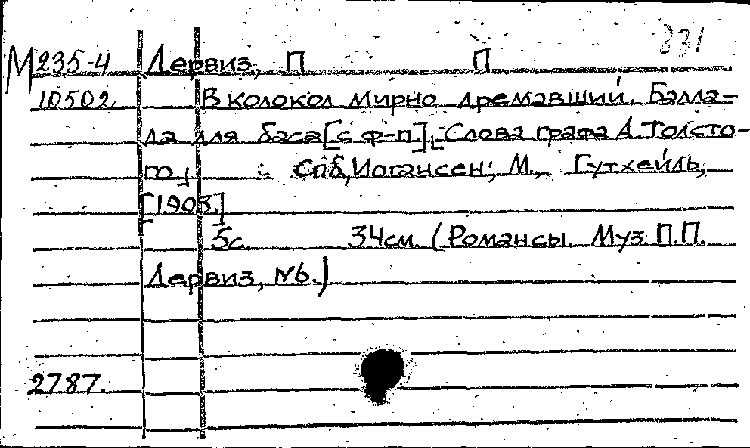 331
М235-4 Дервиз, П П
10502. В колокол мирно дремавший. Балла-
да для баса [с ф-п]. Слова графа А. Толсто-
го. Спб, Иогансен; М., Гутхейль,
[1903.]
5с. 34см. (Романсы. Муз П.П.
Дервиз, №6.)
2787.